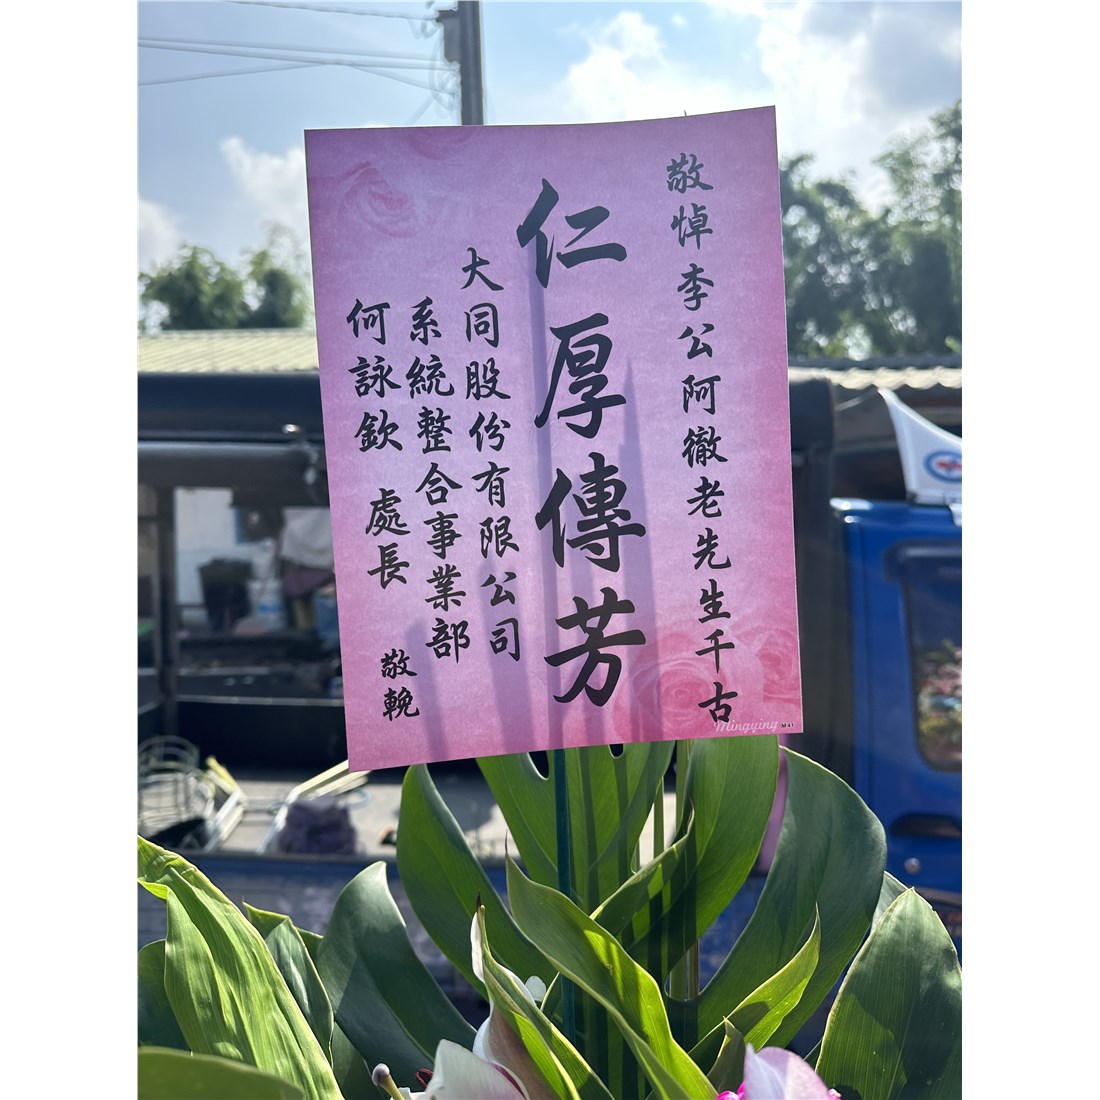 敬悼李公阿徹老先生千古
仁厚傳芳
大同股份有限公司
系統整合事業部
何詠欽 處長 敬輓
Mingying M41